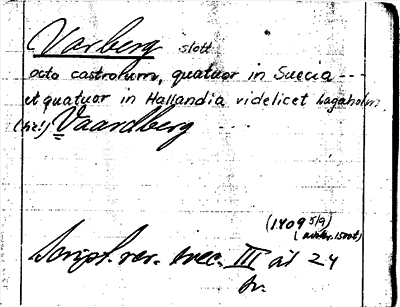 Varberg slott
octo castrorum, quatuor in Suecia ---
et quatuor in Hallandia videlicet Lagaholm
(h:e!) Vaardberg
(1409 5/9)
(avskr. 1500t)
Script. rer. svec. III s. 24